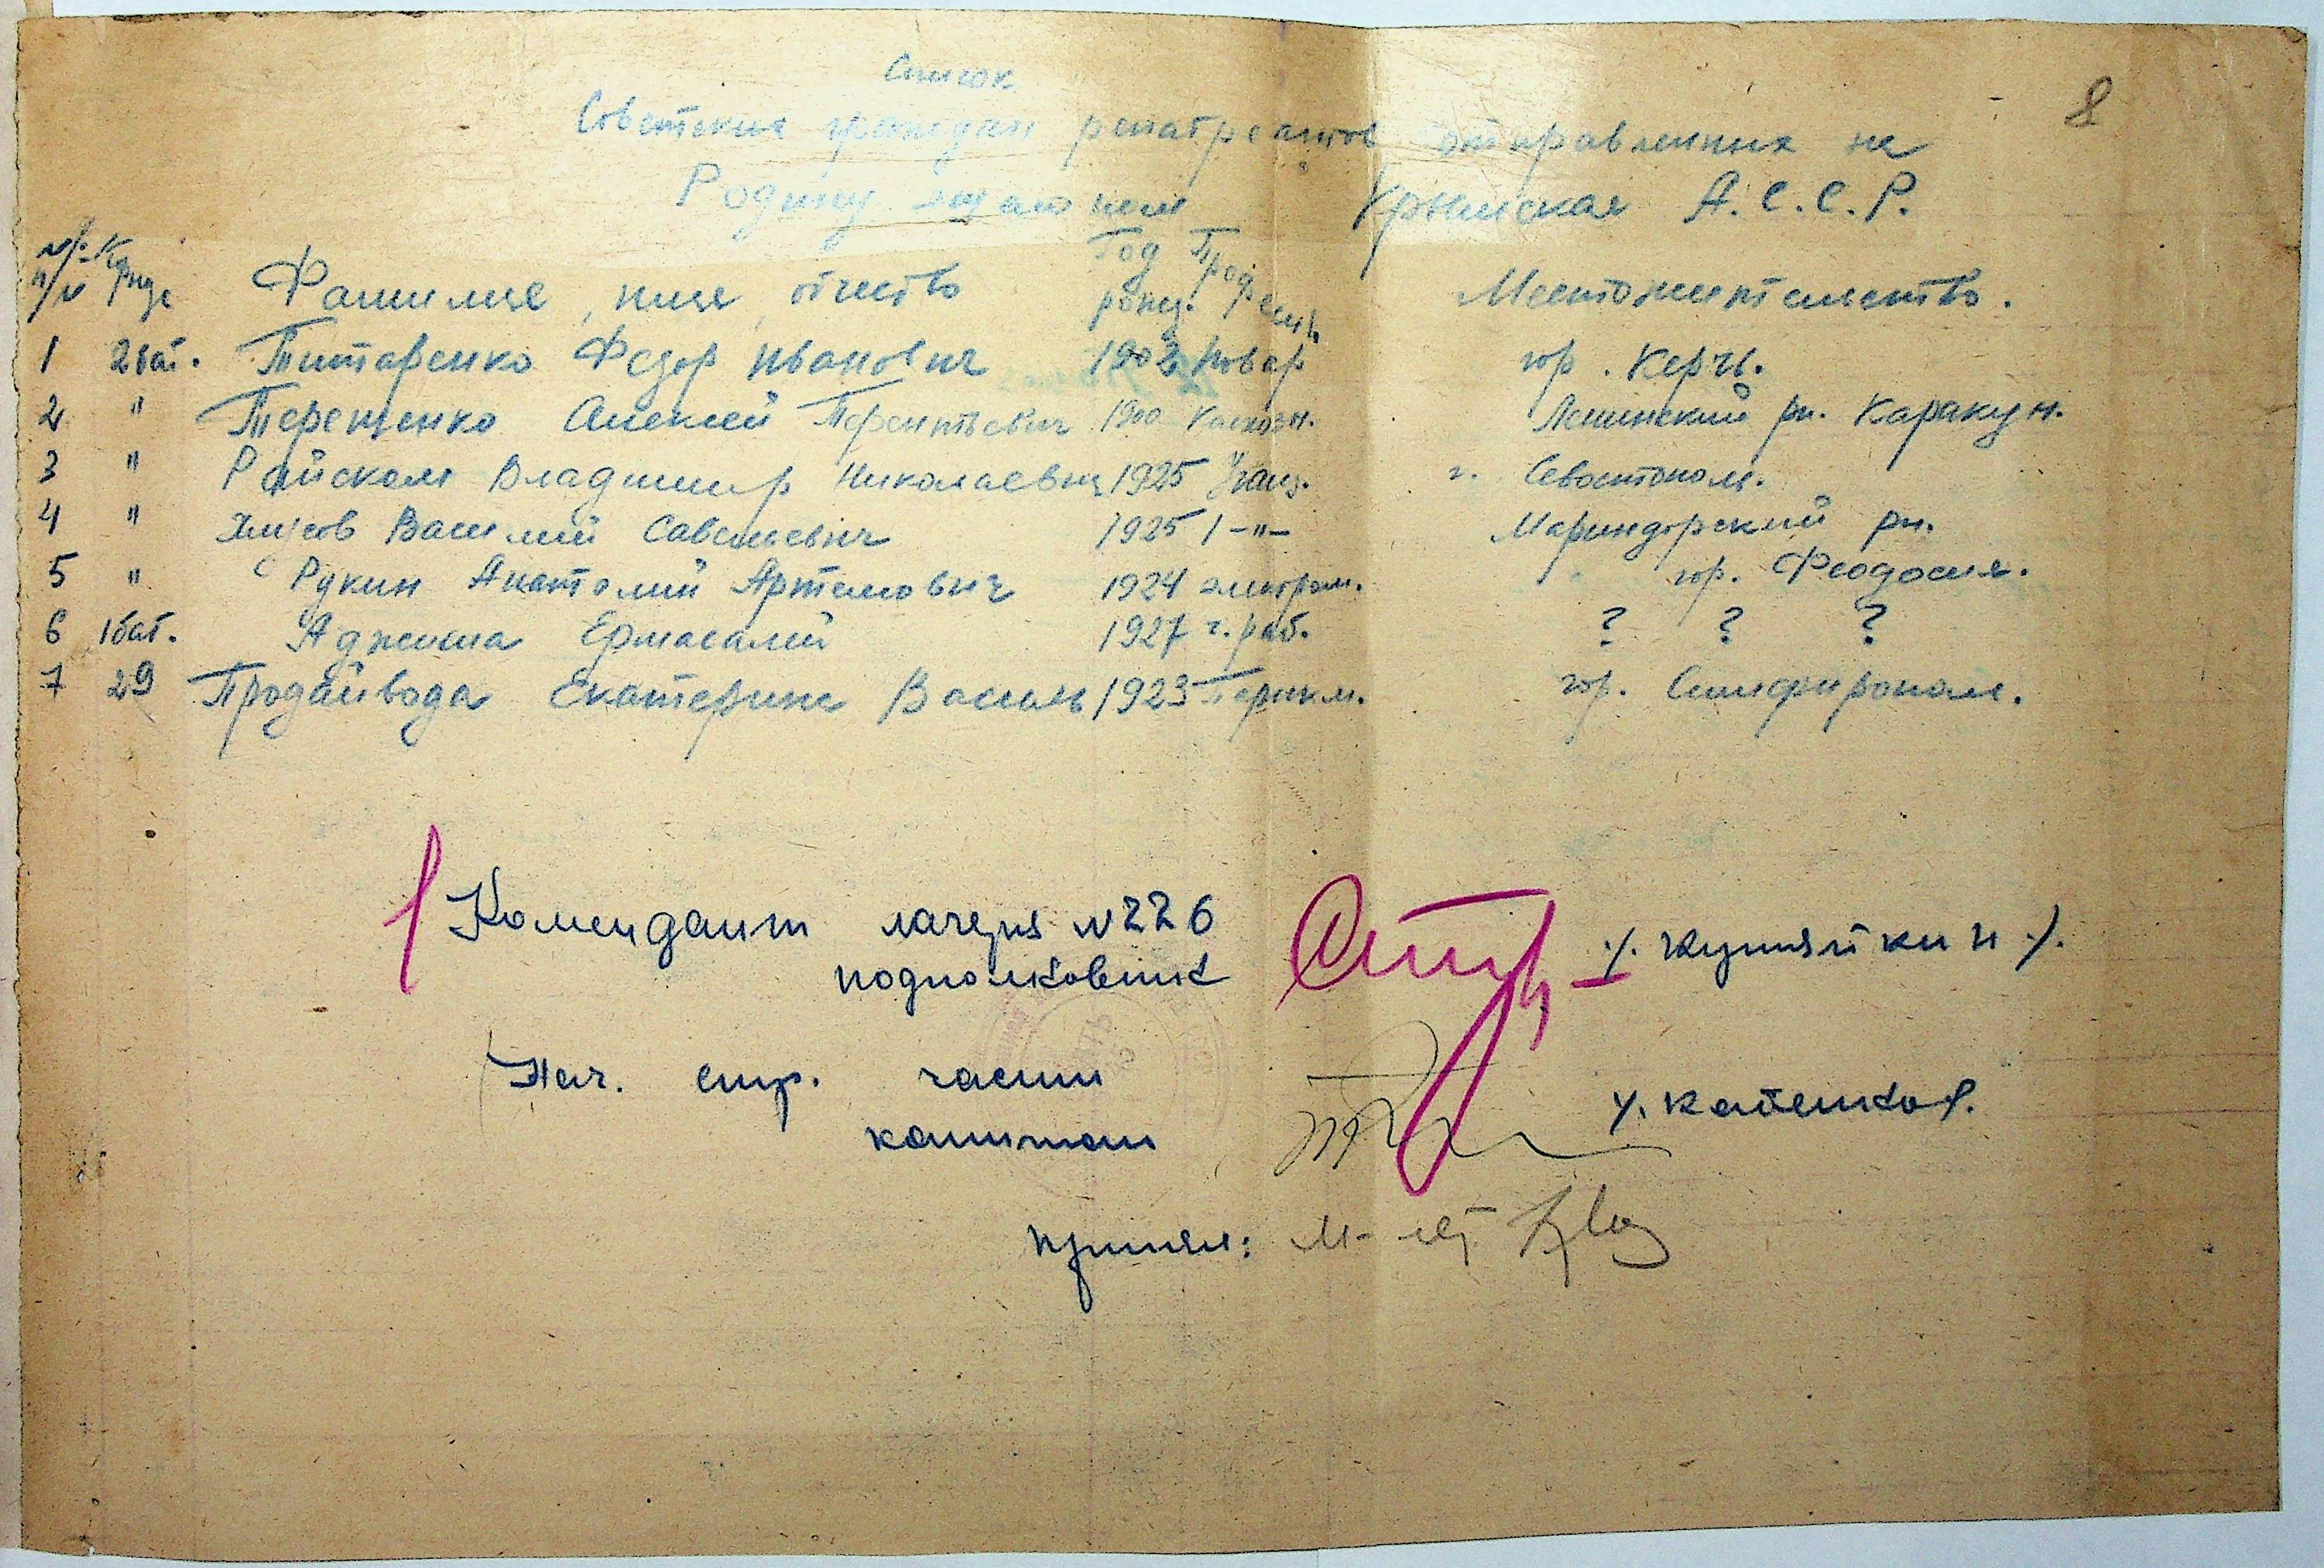 8
Список
Советских граждан репатреантов отправленных на
Родину эшалоном Крымская А.С.С.Р.
№ п/п Фамилие, имя, отчество Год рожд. Професия. Местожительство.
1 2 бат. Титаренко Федор Иванович 1903 повар гор. Керчь.
2 " Терещенко Алексей Терентьевич 1900 колхозн. Ленинский рн. Каракун.
3 " Райском Владимир Николаевич 1925 Учащ. г. Севостополь.
4 " Василий Савельевич 1925 -"- Мариндорский рн.
5 " Рукин Анатолий Артемович 1924 электром. гор. Феодосия.
6 1 бат. Аджима Ермасалий 1927 г. раб. ? ? ?
7 29 Продайвода Екатерина Василь 1923 гор. Симфирополь.
Комендант лагеря №226
подполковник /. Кутяйкин ./.
Нач. стр. части
капитан
Принял: М-